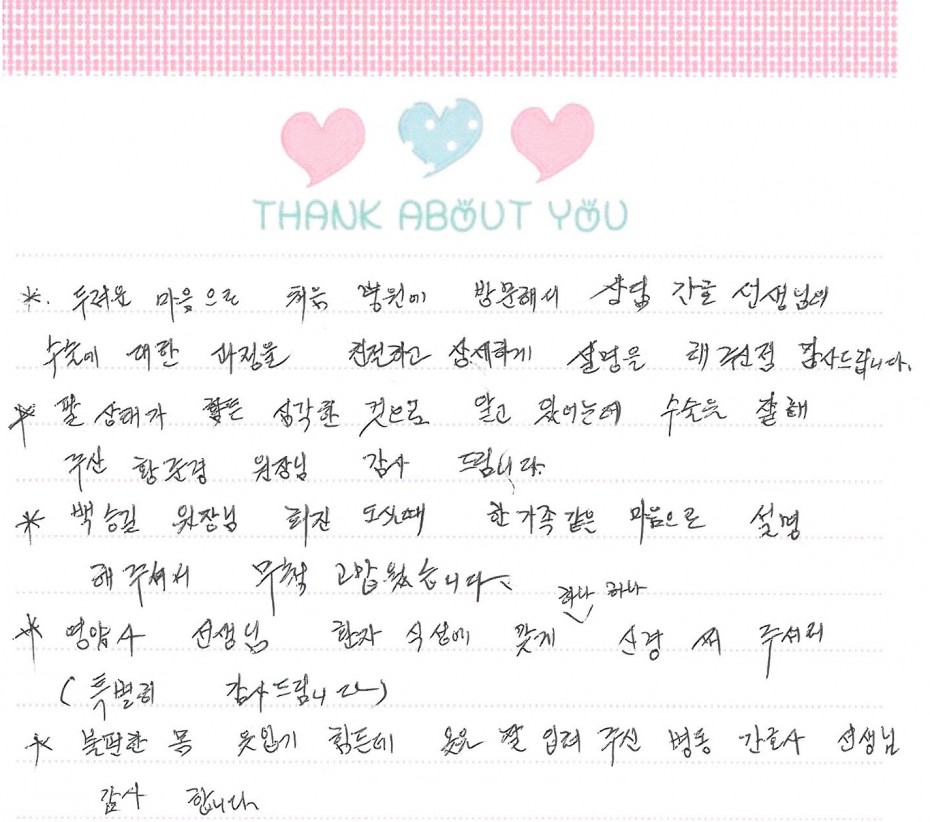 THANK ABOUT YOU
*. 두려운 마음으로 처음 병원에 방문해서 상담 간골 선생님의
수술에 대한 과정을 친절하고 상세하게 설명을 해 주신점 감사드립니다.
* 팔 상태가 힘든 심각한 것으로 알고 있어는데 수술을 잘해
주신 황준경 원장님 감사 드립니다.
* 백승길 원장님 회진 도실때 한 가족같은 마음으로 설명
해 주셔서 무척 고맙웠습니다.
하나 하나
* 영양사 선생님 환자 식성에 맞게 신경 써 주셔서
(특별히 감사드립니다)
* 불편한 몸 옷입기 힘든데 옷을 잘 입혀 주신 병동 간호사 선생님
감사 합니다.